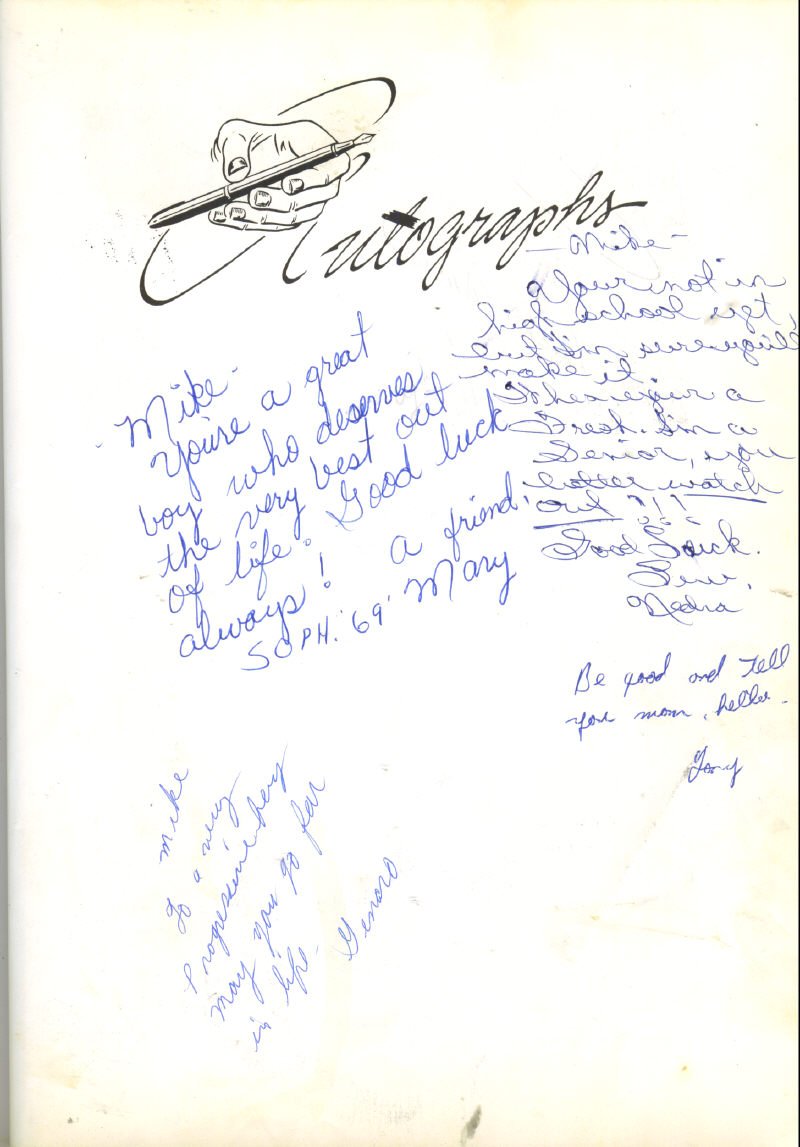 Autographs
Mike -
You're a great
boy who deserves
the very best out
of life. Good luck
always! a friend,
SOPH. '69' Mary
- Mike -
Your not in
high school yet,
but I'm sure you'll
make it.
When your a
Fresh. I'm a
Senior, you
better watch
out ?!!
Good Luck.
Nedra
Be good and tell
your mom, hello.
Tony
Mike
To a very
Progressive boy
may you go far
in life.
Genaro